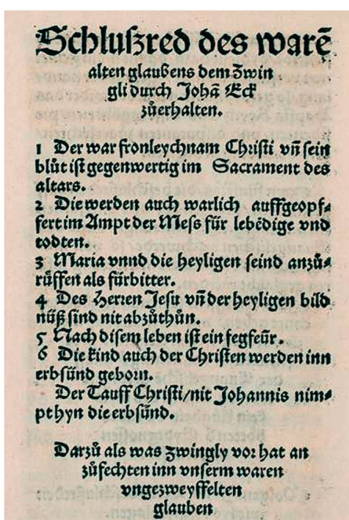 Schlußred des warē
alten glaubens dem Zwin
gli durch Johā Eck
zůerhalten.
1 Der war fronleychnam Christi vñ sein
blůt ist gegenwertig im Sacrament des
altars.
2 Die werden auch warlich auffgeopf⸗
fert im Ampt der Mess für lebēdige vnd
todten.
3 Maria vnnd die heyligen seind anzů⸗
rüffen als fürbitter.
4 Des Herren Jesu vñ der heyligen bild
nüß sind nit abzůthůn.
5 Nach disem leben ist ein fegfeür.
6 Die kind auch der Christen werden inn
erbsünd geborn.
Der Tauff Christi/nit Johannis nim⸗
pt hyn die erbsünd.
Darzů als was Zwingly vor hat an
zůfechten inn vnserm waren
vngezweyffelten
glauben